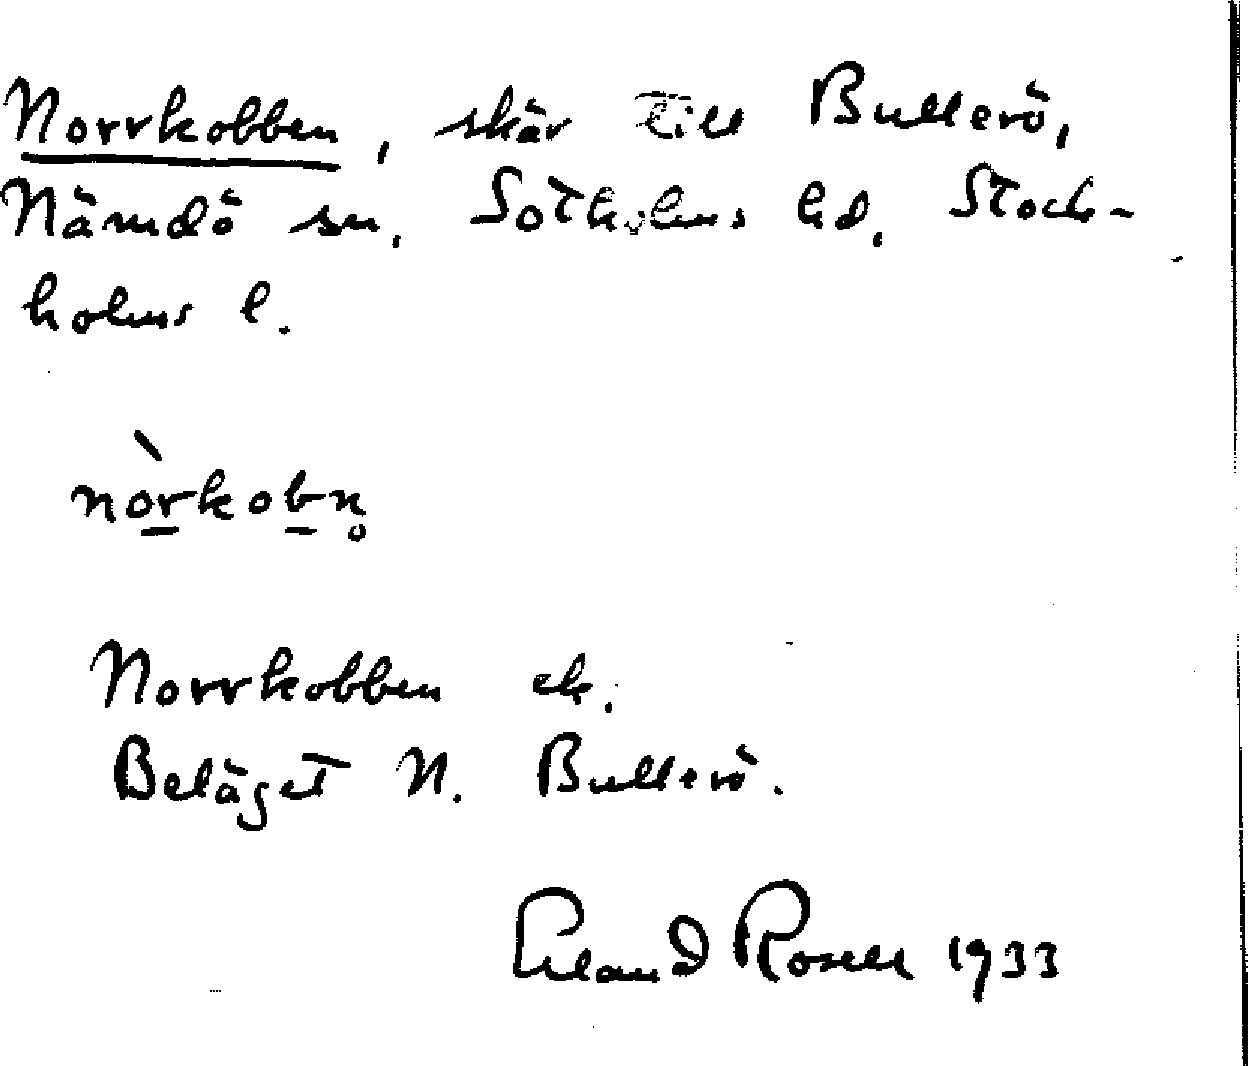 Norrkobben, skär till Bullerö,
Nämdö sn, Sotholms hd, Stock-
holms l.
nòrkobn̥
Norrkobben ek.
Beläget N. Bullerö.
Erland Rosell 1933